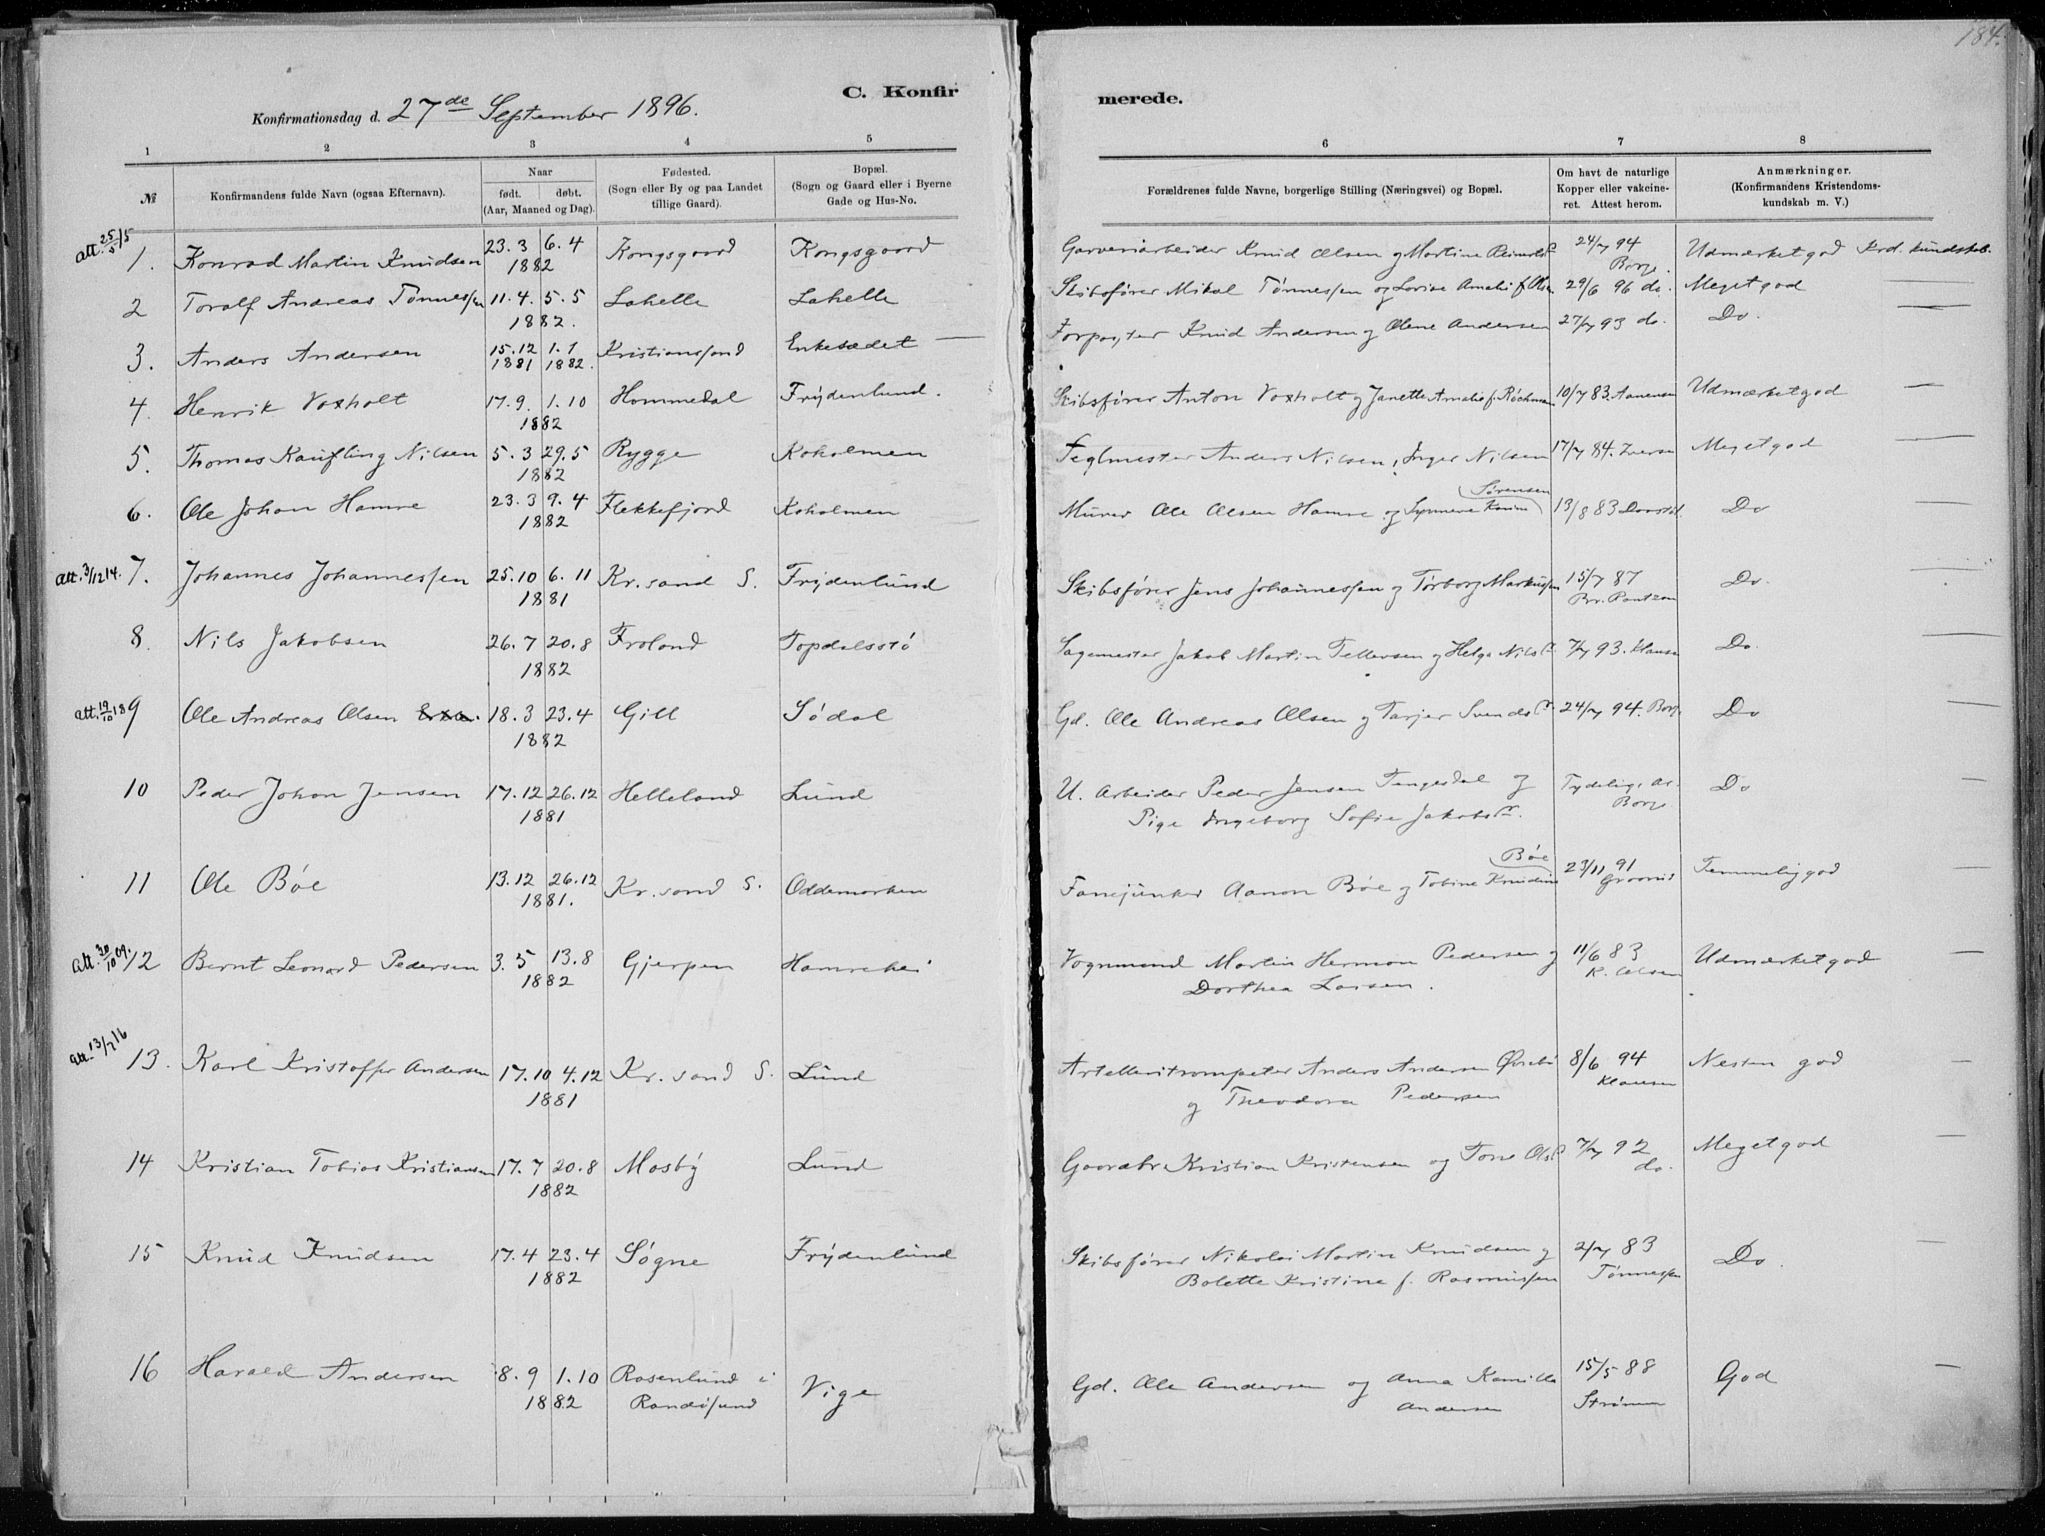 184.
C. Konfirmerede.
Konfirmationsdag d. 27de September 1896.
1 2 3 4 5 6 7 8
№
Konfirmandens fulde Navn (ogsaa Efternavn).
Naar
født. døbt.
(Aar, Maaned og Dag).
Fødested.
(Sogn eller By og paa Landet
tillige Gaard).
Bopæl.
(Sogn og Gaard eller i Byerne
Gade og Hus-No.
Forældrenes fulde Navne, borgerlige Stilling (Næringsvei) og Bopæl.
Om havt de naturlige
Kopper eller vakcine-
ret. Attest herom.
Anmærkninger.
(Konfirmandens Kristendoms-
kundskab m. V.)
att. 25/3 15 1. Konrad Martin Knudsen 23.3 6.4 1882 Kongsgaard Kongsgaard Garveriarbeider Knud Olsen og Martine 24/7 94 Borge. Udmærket god Krd. kundskab.
2 Toralf Andreas Tønnessen 11.4. 5.5 1882. Lahelle Lahelle Skibsfører Mikal Tønnessen og Lovise Amalie f. Olsen 29/6 96 do. Meget god —
3. Anders Andersen 15.12 1881 1.1 1882. Kristianssand Enkesædet — Knud Andersen og Olene Andersen 27/7 93 do. Do. —
4. Henrik Voxholt 17.9. 1.10 1882 Hommedal Frydenlund. Skibsfører Anton Voxholt og Janette Amalie f. 10/7 83. Aanensen Udmærket god —
5. Thomas Kaufling Nilsen 5.3 29.5 1882 Rygge Koholmen Teglmester Anders Nilsen, Inger Nilsen 17/7 84. Iversen Meget god —
6. Ole Johan Hamre 23.3 9.4 1882 Flekkefjord Koholmen Murer Ole Olsen Hamre og Karine Sørensen 13/8 83 Do —
att. 3/12 14. 7. Johannes Johannessen 25.10 6.11 1881 Kr.sand S. Frydenlund Skibsfører Jens Johannessen og Torborg Markussen 15/7 87 Do. —
8. Nils Jakobsen 26.7 20.8 1882 Froland Topdalsstø Sagmester Jakob Martin Tellevsen og Helga Nilsd. 7/7 93. Klausen Do. —
att. 19/10 18 9 Ole Andreas Olsen 18.3 23.4 1882 Gill Sødal Gd. Ole Andreas Olsen og Tarjer Svendsd. 24/7 94. Borge Do —
10 Peder Johan Jensen 17.12 26.12 1881 Helleland Lund U. Arbeider Peder Jensen Tengesdal og
Pige Ingeborg Sofie Jakobsd. Tydelige ar. Borge Do —
11 Ole Bøe 13.12 26.12 1881. Kr.sand S. Oddemarken Fanejunker Aanon Bøe og Tobine Knudine Bøe 23/11 91 Temmelig god —
att. 30/10 09. 12 Bernt Leonard Pedersen 3.5 13.8 1882 Gjerpen Hamrehei Vognmand Martin Herman Pedersen og
Dorthea Larsen. 11/6 83 K. Olsen Udmærket god —
att. 13/7 16 13. Karl Kristoffer Andersen 17.10 4.12 1881 Kr.sand S. Lund Artelleritrompeter Anders Andersen
og Theodora Pedersen 8/6 94 Klausen Nesten god —
14 Kristian Tobias Kristiansen 17.7 20.8 1882 Mosby Lund Gaardbr. Kristian Kristensen og Tone Olsd. 7/7 92 do. Meget god —
15 Knud Knudsen 17.4 23.4 1882 Søgne Frydenlund Skibsfører Nikolai Martin Knudsen og
Bolette Kristine f. Rasmussen 2/7 83 Tønnessen Do. —
16 Harald Andersen 8.9 1.10 1882 Rosenlund i
Randøsund Vige Gd. Ole Andersen og Anna Kamilla
Andersen 15/5 88 Strømme God —